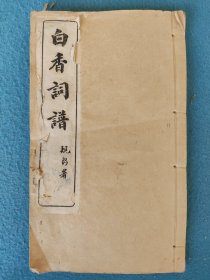 白香詞譜